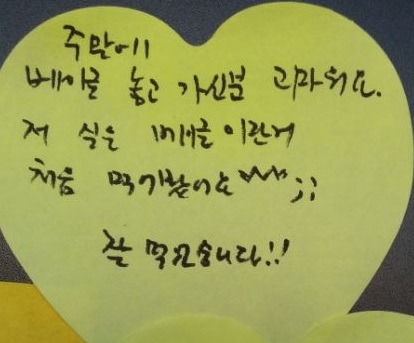 주말에
베이글 놓고 가신분 고마워요.
저 실은 베글이란거
처음 먹어봤어요 ^^^;;
잘 먹었습니다!!